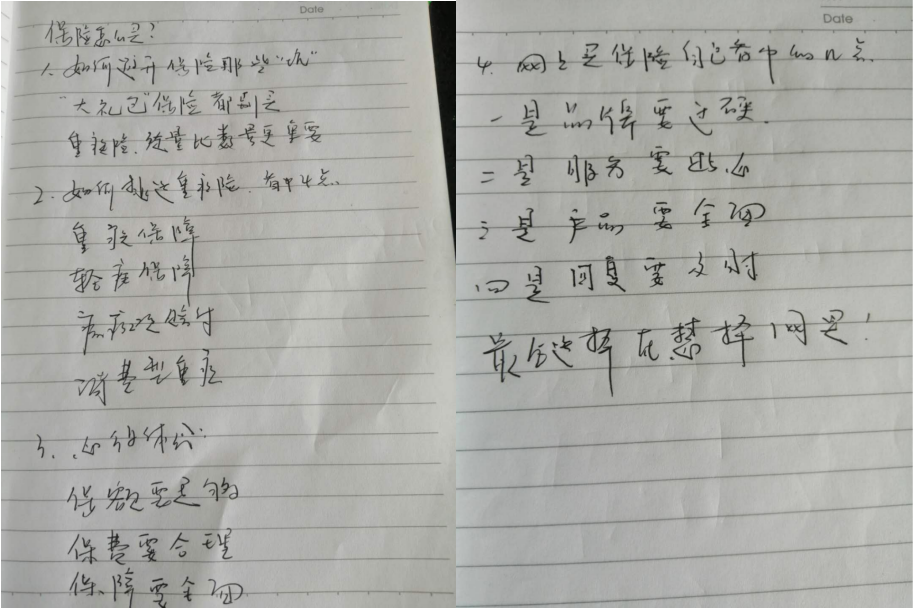 Date
保险怎么买?
1. 如何避开保险那些"坑"
"大礼包"保险都别买
重疾险, 质量比数量更重要
2. 如何挑选重疾险, 看中4点
重疾保障
轻症保障
疾病 赔付
消费型重疾
3. 心得体会:
保额要足够
保费要合理
保障要全面
Date
4. 网上买保险自己看中的几点
一是品牌要过硬.
二是服务要贴心
三是产品要全面
四是回复要及时
最会选择在慧择网买!